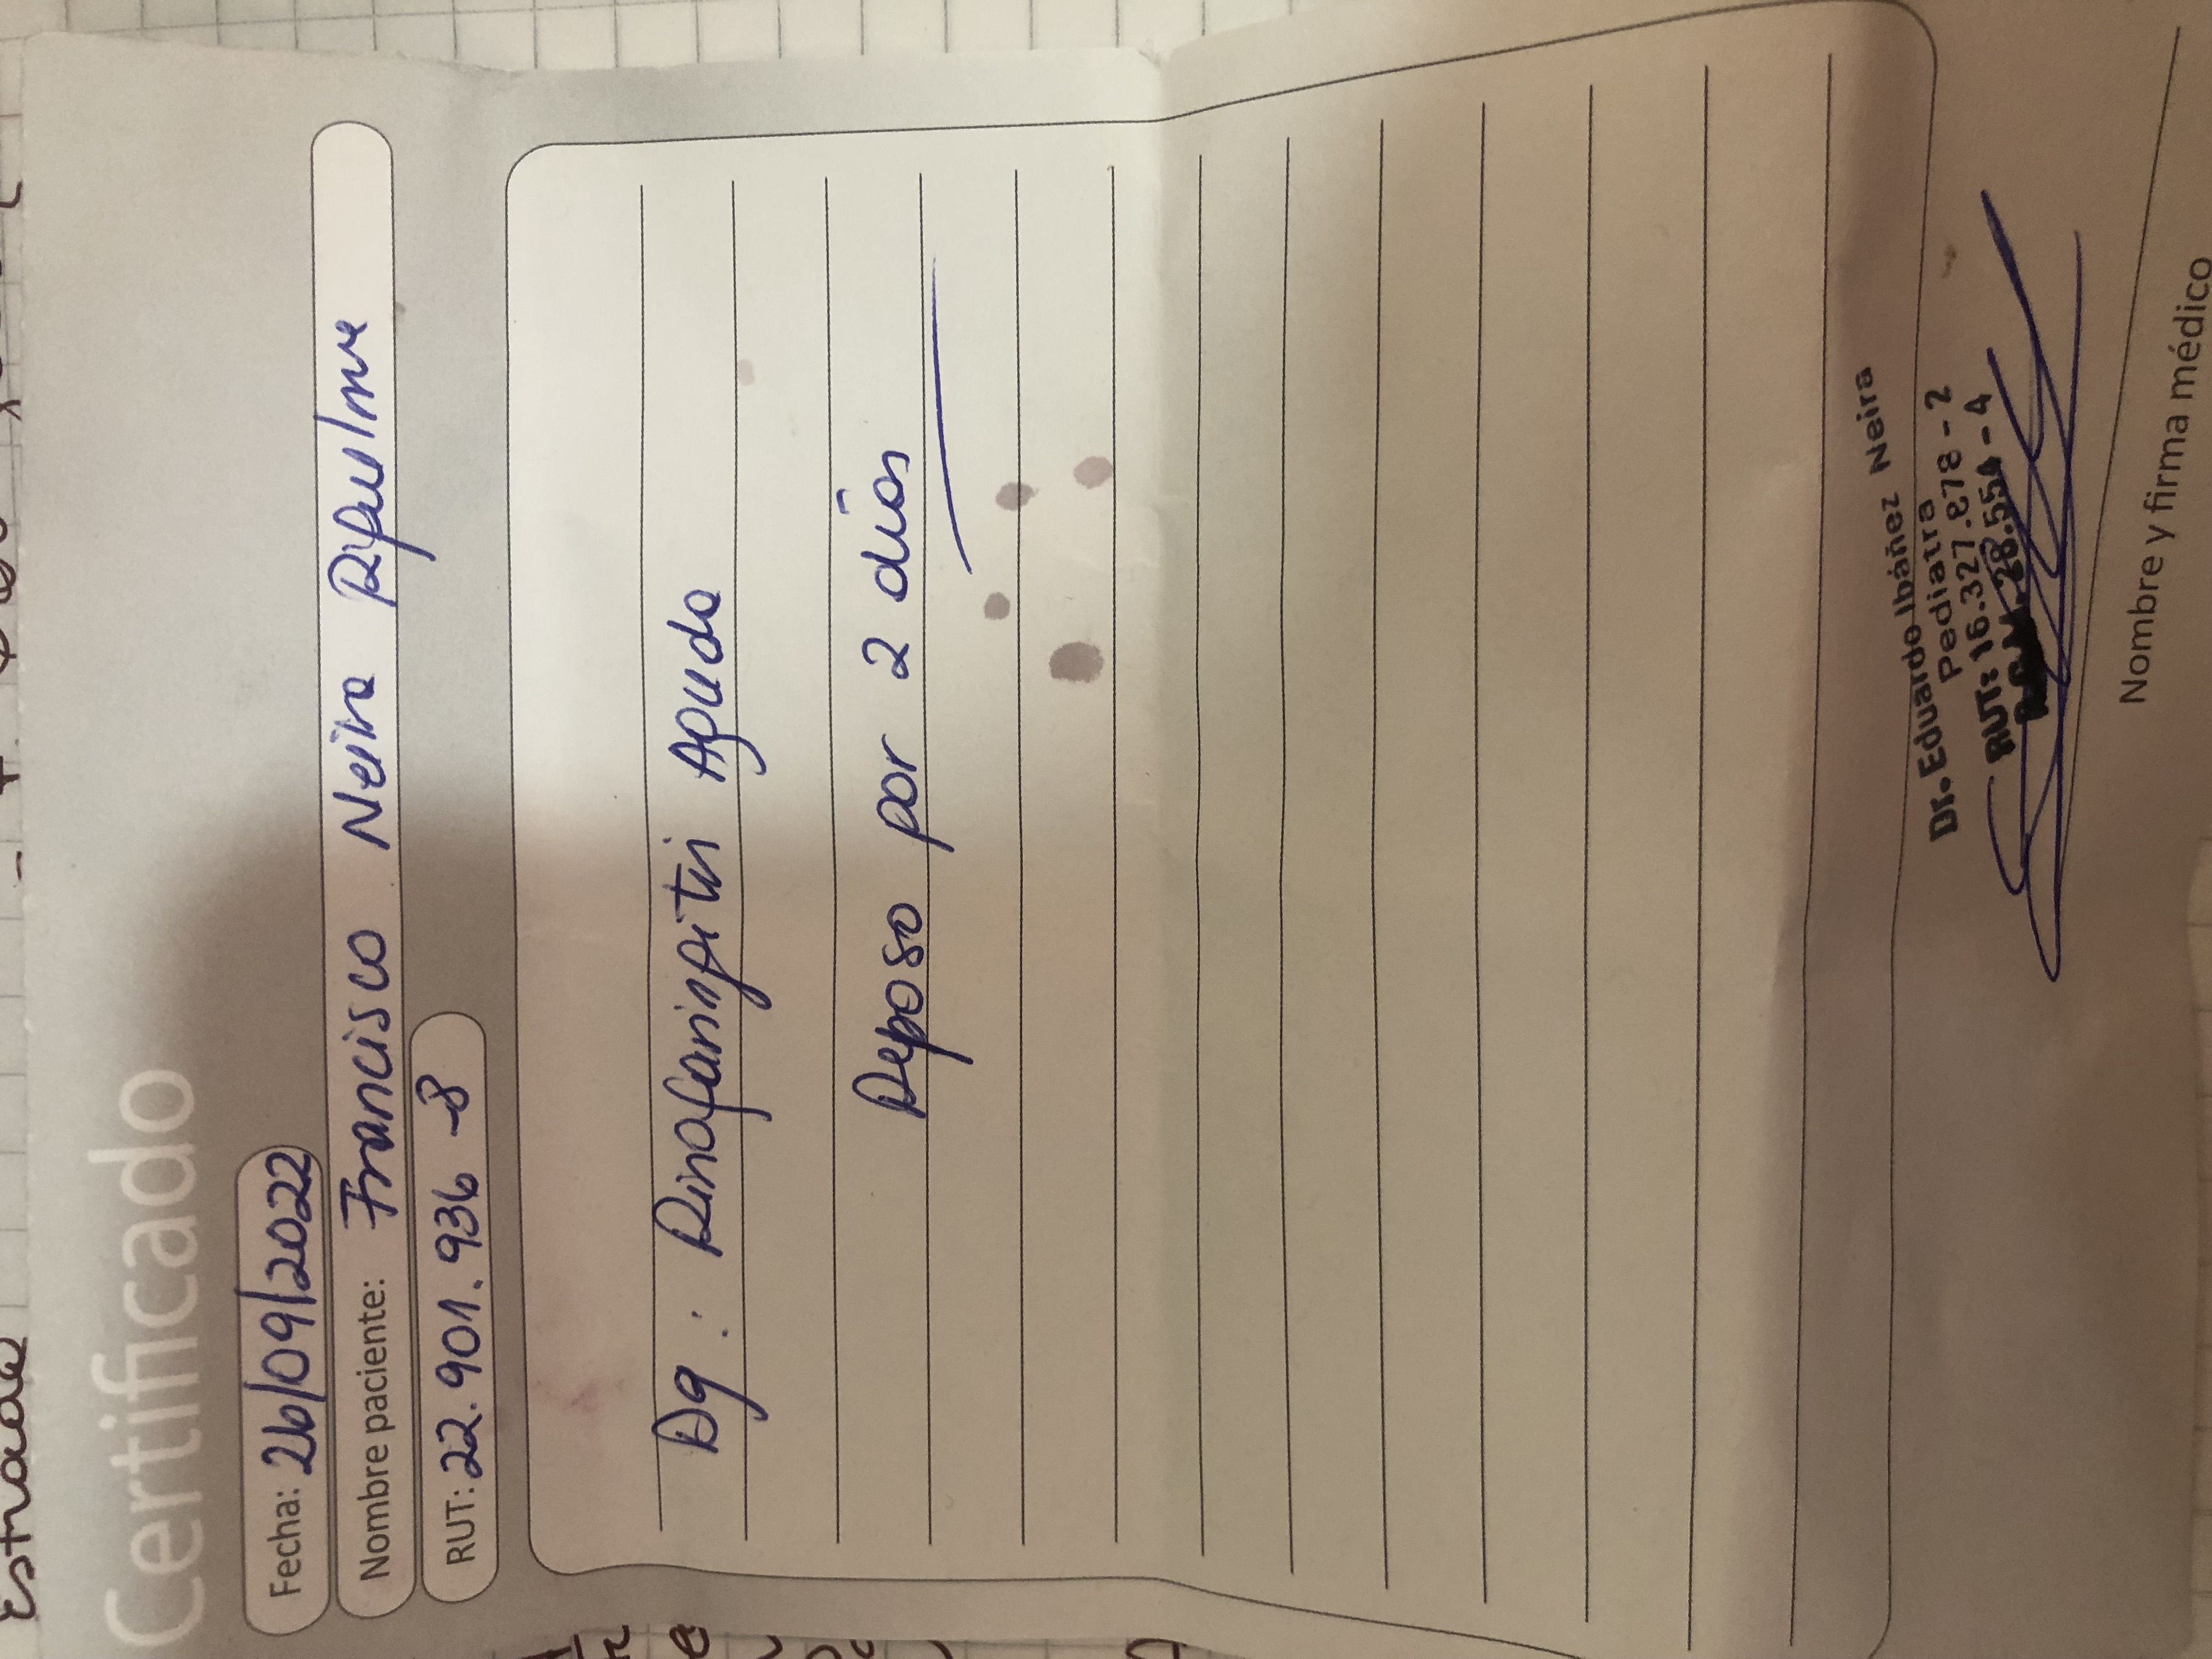 Certificado
Fecha: 26/09/2022
Nombre paciente: Francisco Neira
RUT: 22.901.936-8
Dg: Rinofaringitis Aguda
Reposo por 2 días
Dr. Eduardo Ibáñez Neira
Pediatra
RUT: 16.327.878-2
28.554-4
Nombre y firma médico